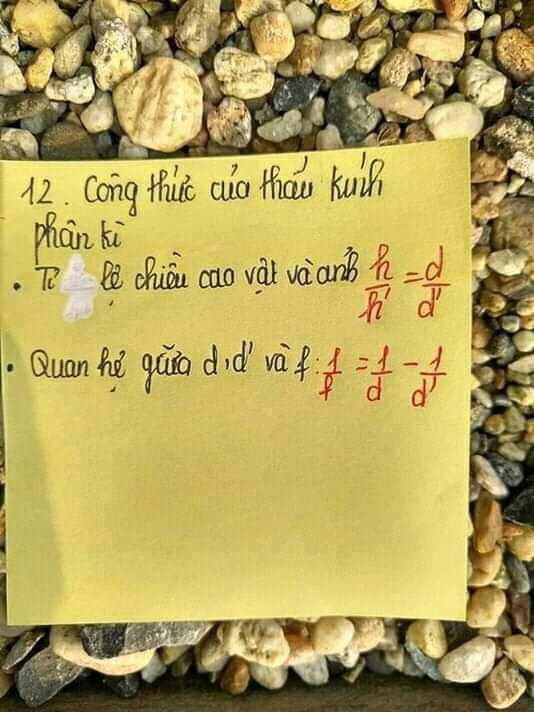 12. Công thức của thấu kính
phân kì
• Tỉ lệ chiều cao vật và ảnh h/h' = d/d'
• Quan hệ giữa d, d' và f: 1/f = 1/d - 1/d'